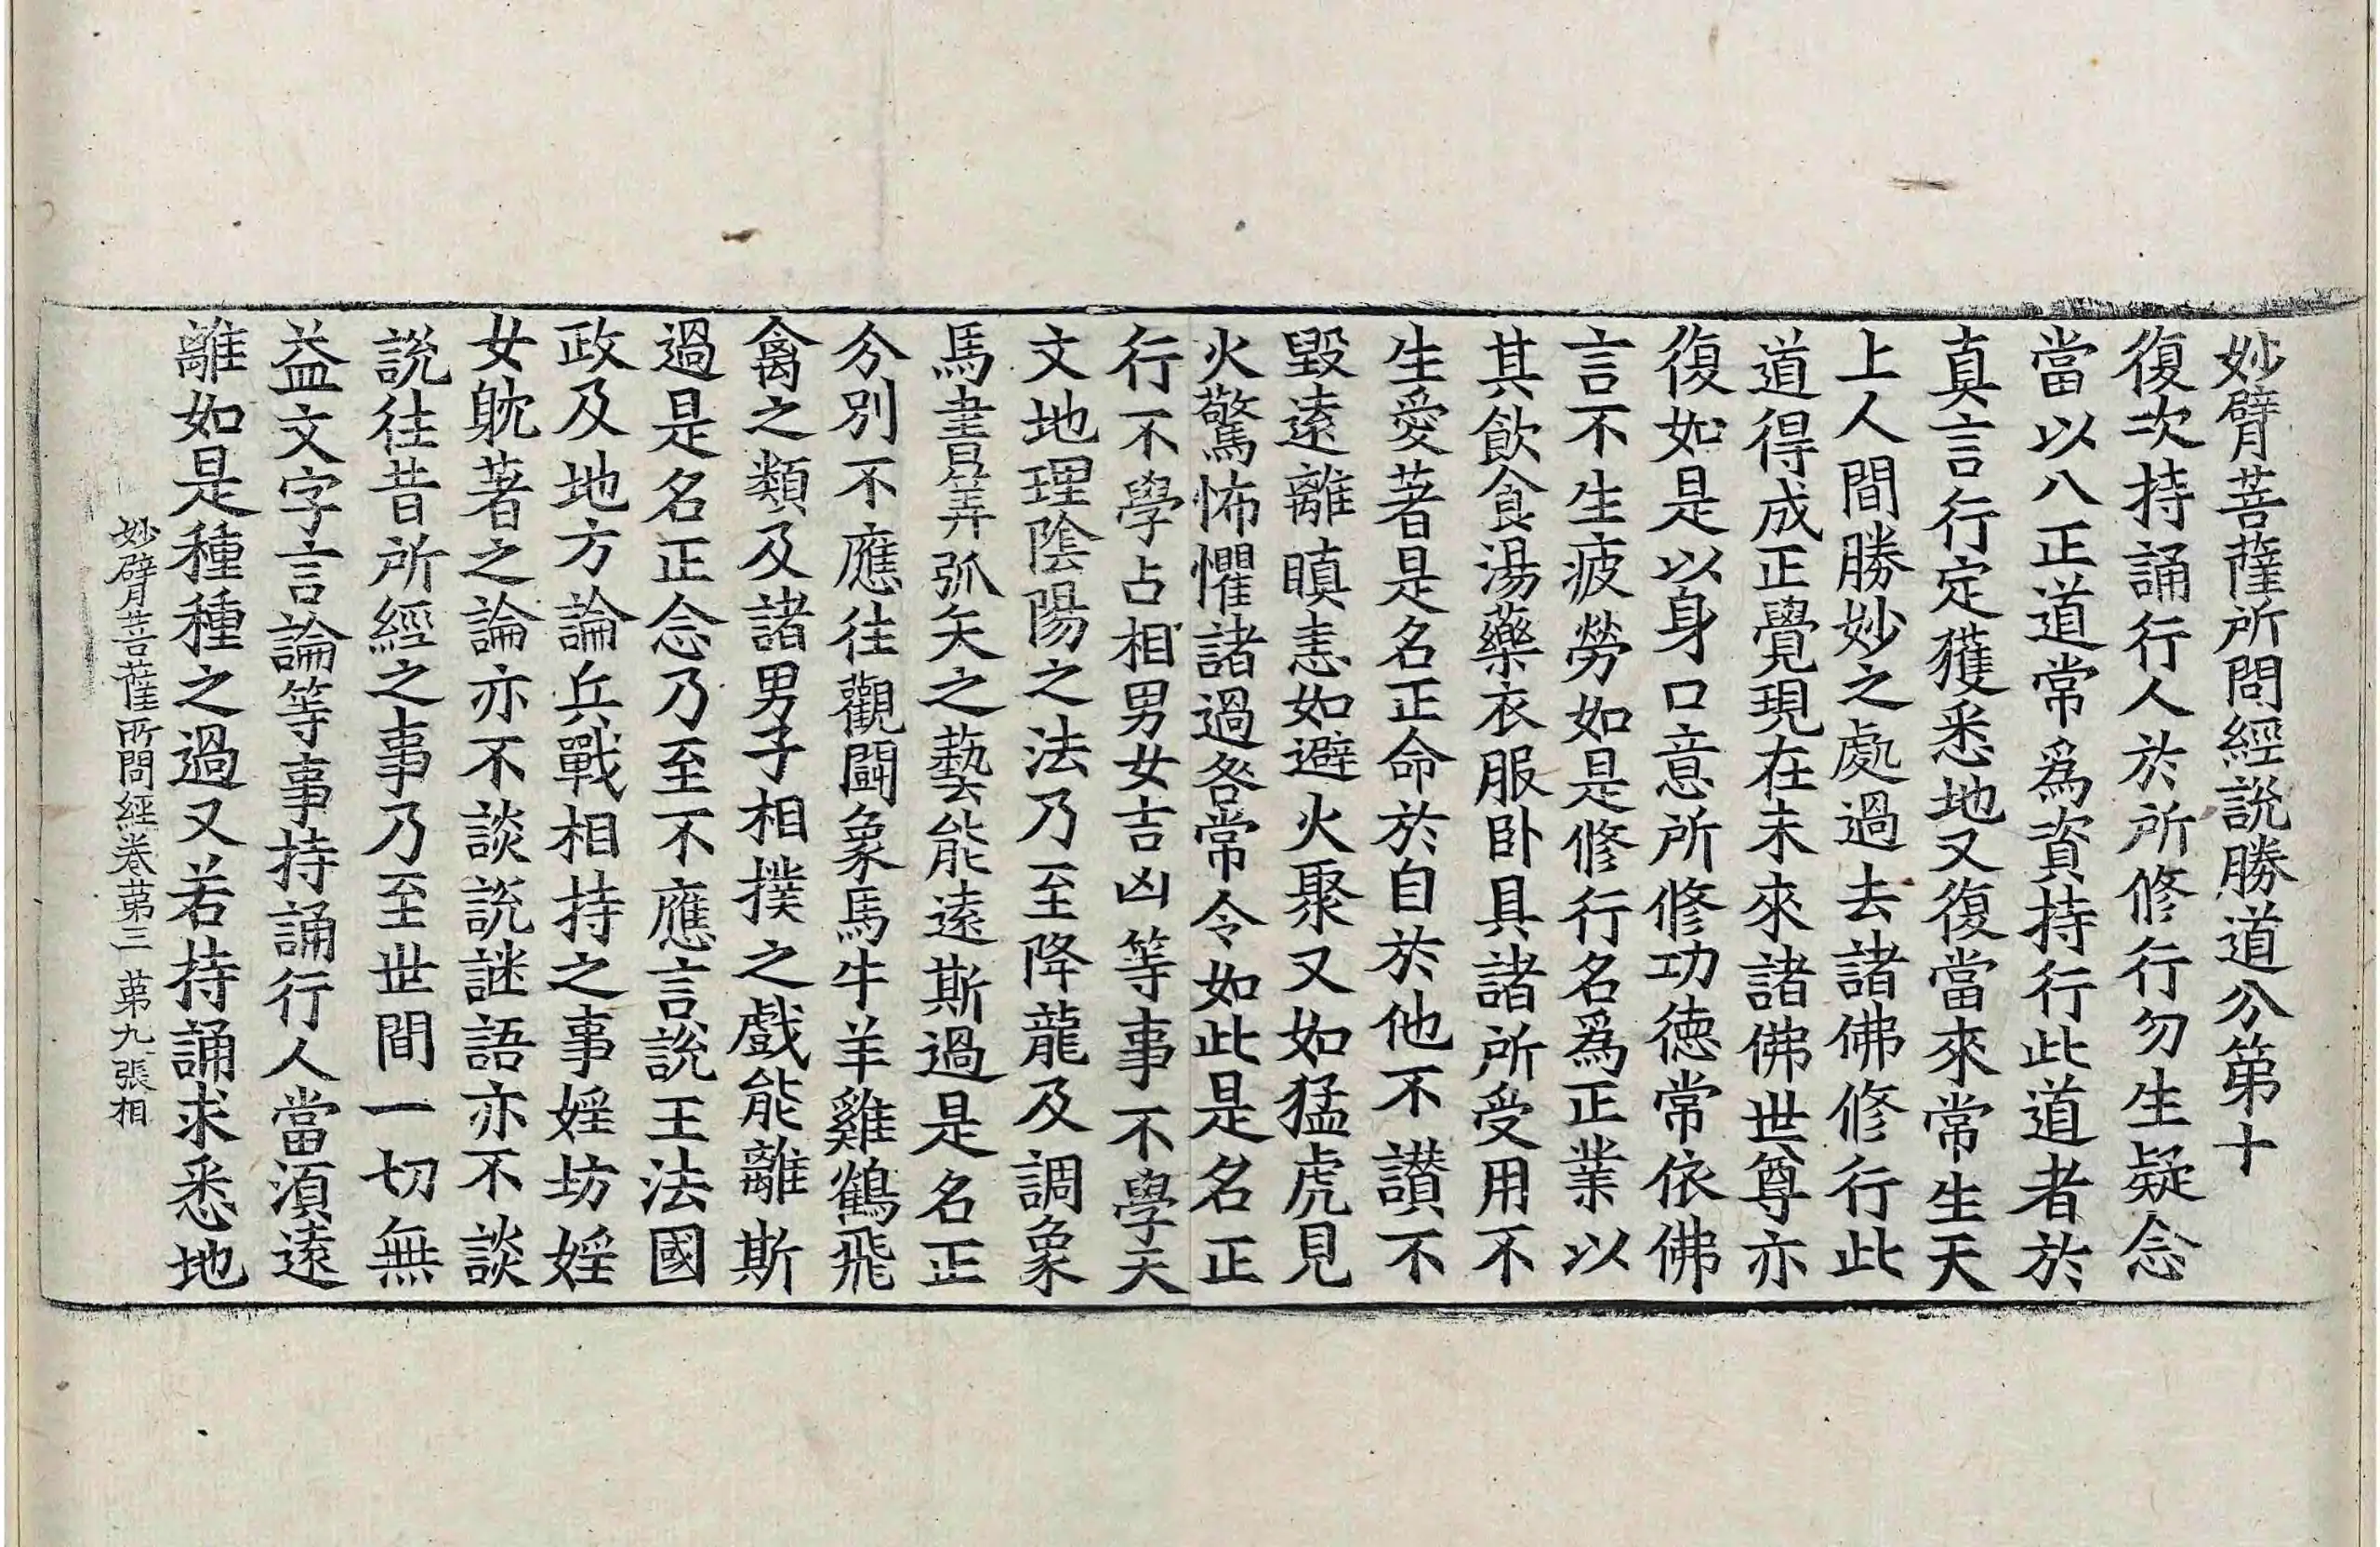 妙臂菩薩所問經說勝道分第十
復次持誦行人於所修行勿生疑念
當以八正道常爲資持行此道者於
真言行定獲悉地又復當來常生天
上人間勝妙之處過去諸佛修行此
道得成正覺現在未來諸佛世尊亦
復如是以身口意所修功德常依佛
言不生疲勞如是修行名爲正業以
其飲食湯藥衣服卧具諸所受用不
生愛著是名正命於自於他不讃不
毀逺離瞋恚如避火聚又如猛虎見
火驚怖懼諸過咎常令如此是名正
行不學占相男女吉凶等事不學天
文地理陰陽之法乃至降龍及調象
馬書筭弧矢之藝能逺斯過是名正
分別不應往觀鬬象馬牛羊雞鶴飛
禽之類及諸男子相撲之戲能離斯
過是名正念乃至不應言說王法國
政及地方論兵戰相持之事婬坊婬
女躭著之論亦不談說謎語亦不談
說往昔所經之事乃至世間一切無
益文字言論等事持誦行人當須逺
離如是種種之過又若持誦求悉地
妙臂菩薩所問經卷苐三 苐九張 相